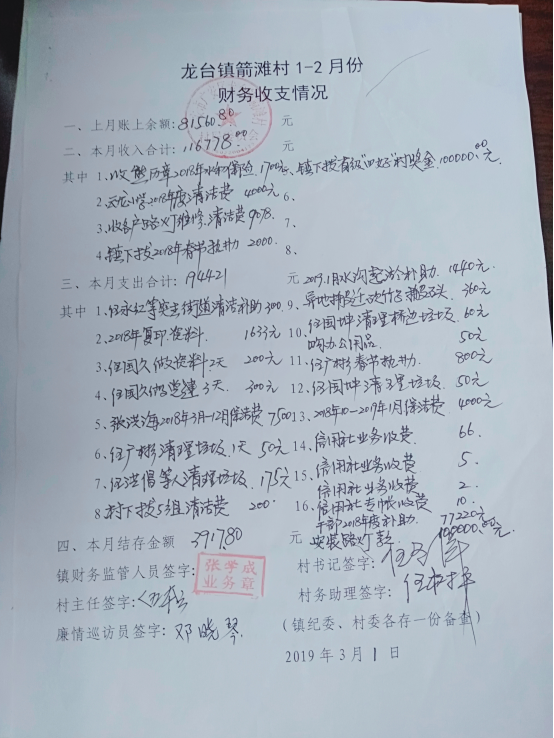 龙台镇箭滩村1-2月份
财务收支情况
一、上月账上余额:81560.80 元
二、本月收入合计:116778.00 元
其中 1、收熊历章2018年水稻保险 1700元、镇下拨省级"四好"村奖金 100000.00元
2、云龙小学2018年度清洁费 4000元 6、
3、收客户路灯维修.清洁费9078. 7、
4、镇下拨2018年春节拉力 2000. 8、
三、本月支出合计: 194421 元 2019.1月水沟整治补助. 1440元.
其中 1、任永红等实主街道清洁补助 300. 9、异地搬迁 360元
2、2018年复印资料. 1633元 10、任国坤清理桥边垃圾. 60元
购办公用品. 50元
3、任国久做资料2天 200元 11、任广彬春节 800元
4、任国久 3天. 300元 12、任国坤清理垃圾. 50元
5、张洪海2018年3月-12月保洁费 7500 13、2018年10-2019年1月保洁费 4000元
6、任广彬清理垃圾1天 50元 14、信用社业务收费. 66.
7、任洪倡等人清理垃圾. 175元 15、信用社业务收费. 5.
信用社业务收费 2.
8、村下拨5组清洁费 200. 16、信用社 收费 10.
干部2018年度补助. 77220元
四、本月结存金额 3917.80 元 安装路灯款. 100000.00元
镇财务监管人员签字: 张学成
业务章
村书记签字:
村主任签字: 村务助理签字:
廉情巡访员签字: 邓晓琴 (镇纪委、村委各存一份备查)
2019年3月1日